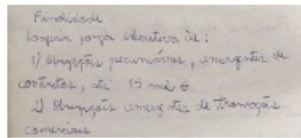 Finalidade
Conferir força executiva às:
1) Obrigações pecuniárias, emergentes de
contratos, até 15 mil €
2) Obrigações emergentes de transações
comerciais